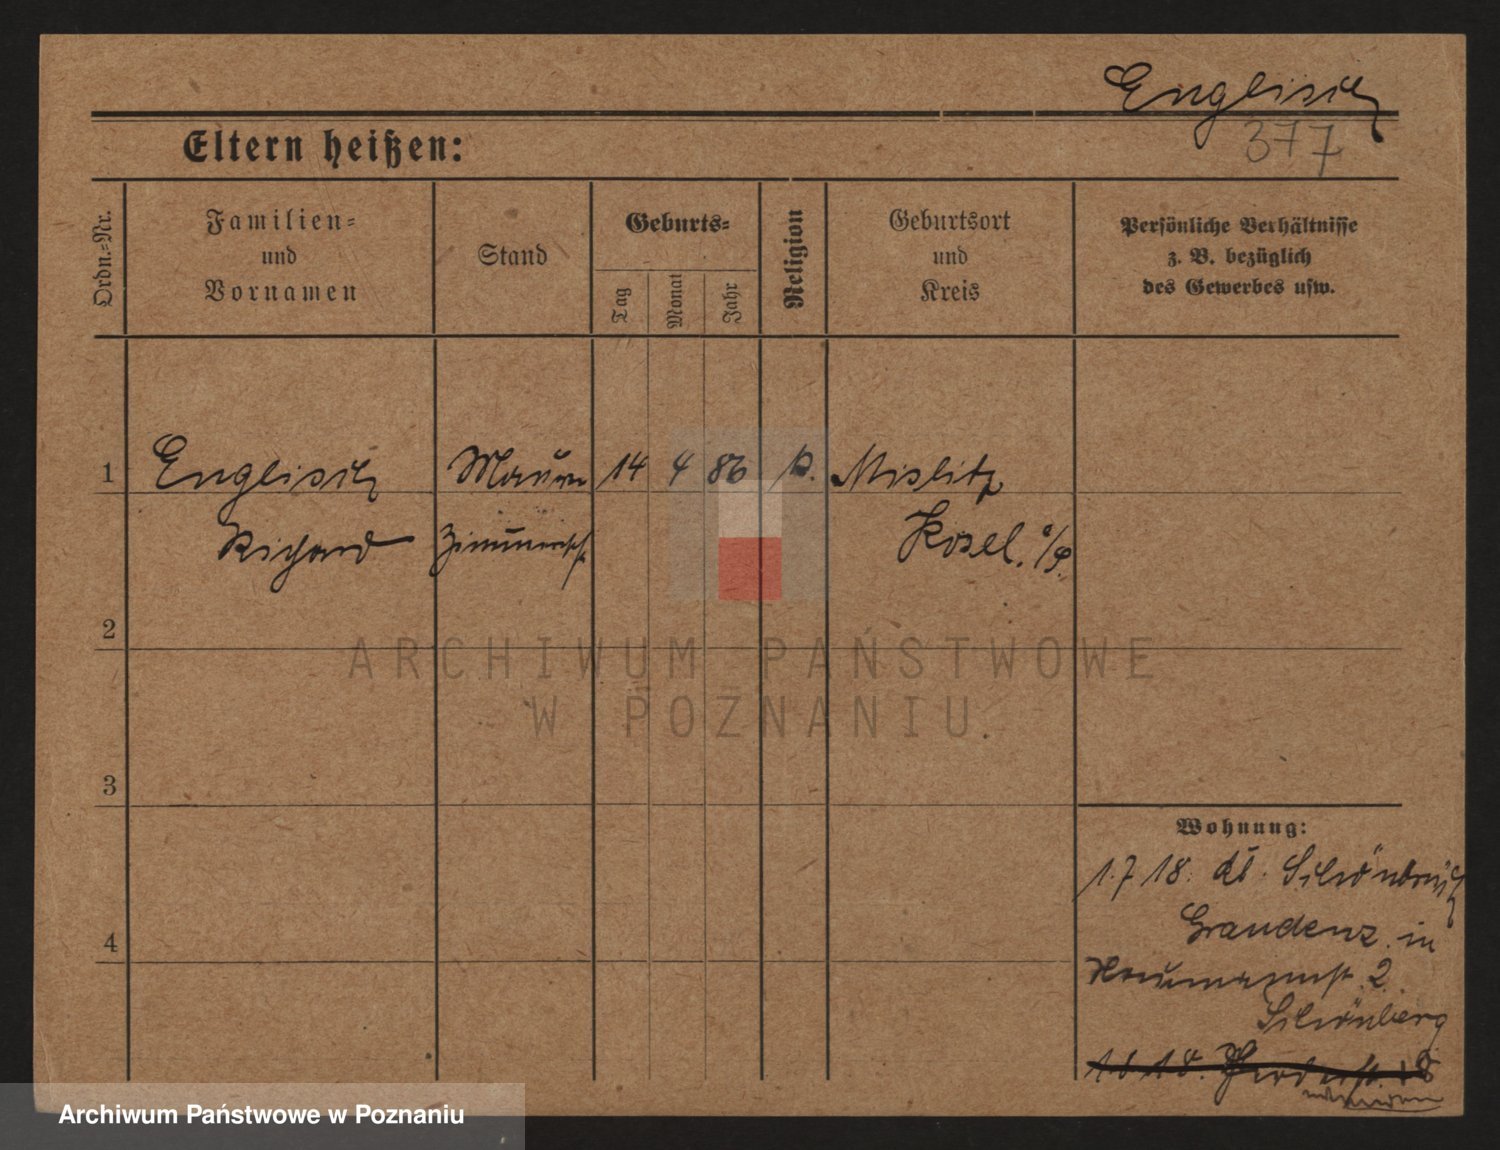 Englisch
377
Eltern heißen:
Ordn.=Nr.
Familien=
und
Vornamen
Stand
Geburts=
Tag
Monat
Jahr
Religion
Geburtsort
und
Kreis
Persönliche Verhältnisse
z. B. bezüglich
des Gewerbes usw.
1
Englisch Maurer 14 4 86 k. Mislitz
Richard Kosel. o/S.
2
3
4
Wohnung:
1.7 18. Schönbrück
Graudenz in
2.
Schönberg
18
ARCHIWUM PAŃSTWOWE
W POZNANIU
Archiwum Państwowe w Poznaniu